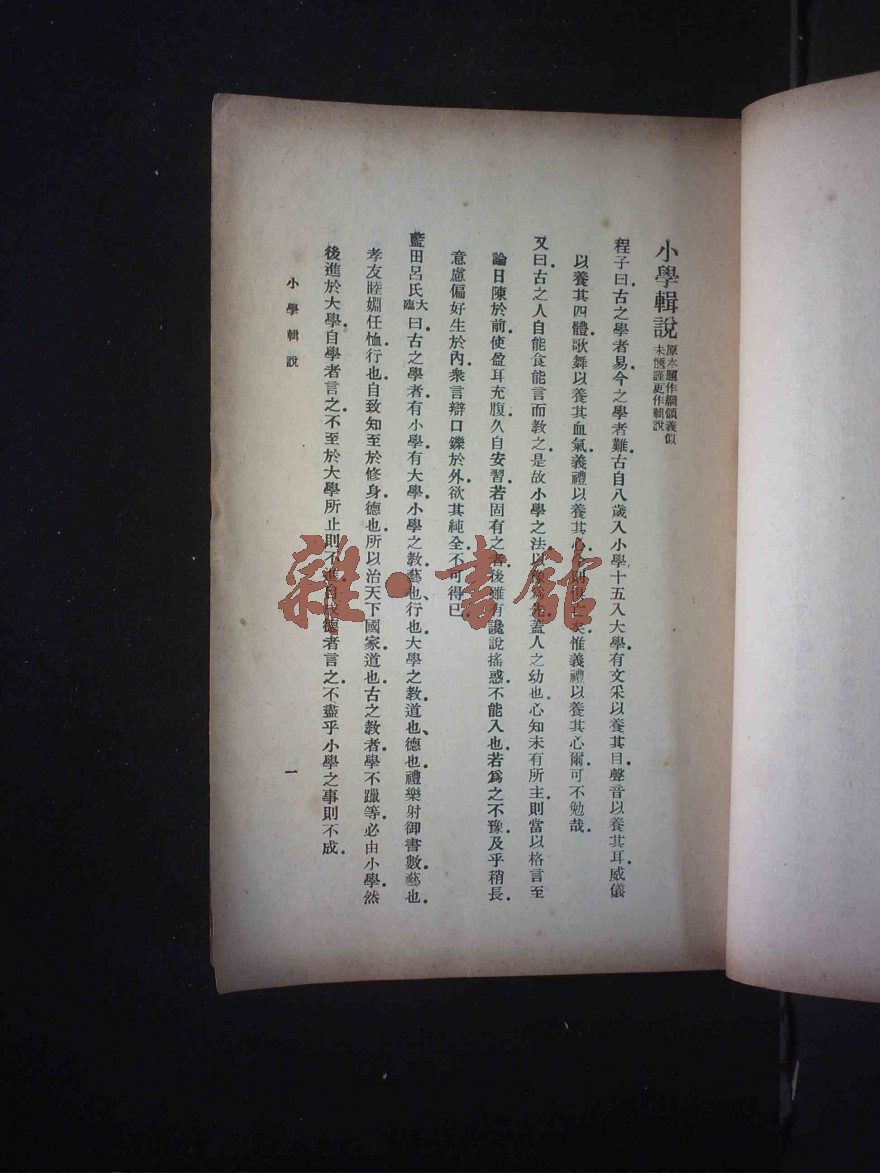 小學輯說 原本題作綱領義似未愜謹更作輯說
程子曰古之學者易今之學者難古自八歲入小學十五入大學有文采以養其目聲音以養其耳威儀
以養其四體歌舞以養其血氣義禮以養其心今則俱亡矣惟義禮以養其心爾可不勉哉
又曰古之人自能食能言而教之是故小學之法以豫為先蓋人之幼也心知未有所主則當以格言至
論日陳於前使盈耳充腹久自安習若固有之者後雖有讒說搖惑不能入也若爲之不豫及乎稍長
意慮偏好生於內衆言辯口鑠於外欲其純全不可得已
藍田呂氏大臨曰古之學者有小學有大學小學之教藝也、行也大學之教道也、德也禮樂射御書數藝也
孝友睦婣任恤行也自致知至於修身德也所以治天下國家道也古之教者學不躐等必由小學然
後進於大學自學者言之不至於大學所止則不進自成德者言之不盡乎小學之事則不成
小學輯說
一
雜·書館